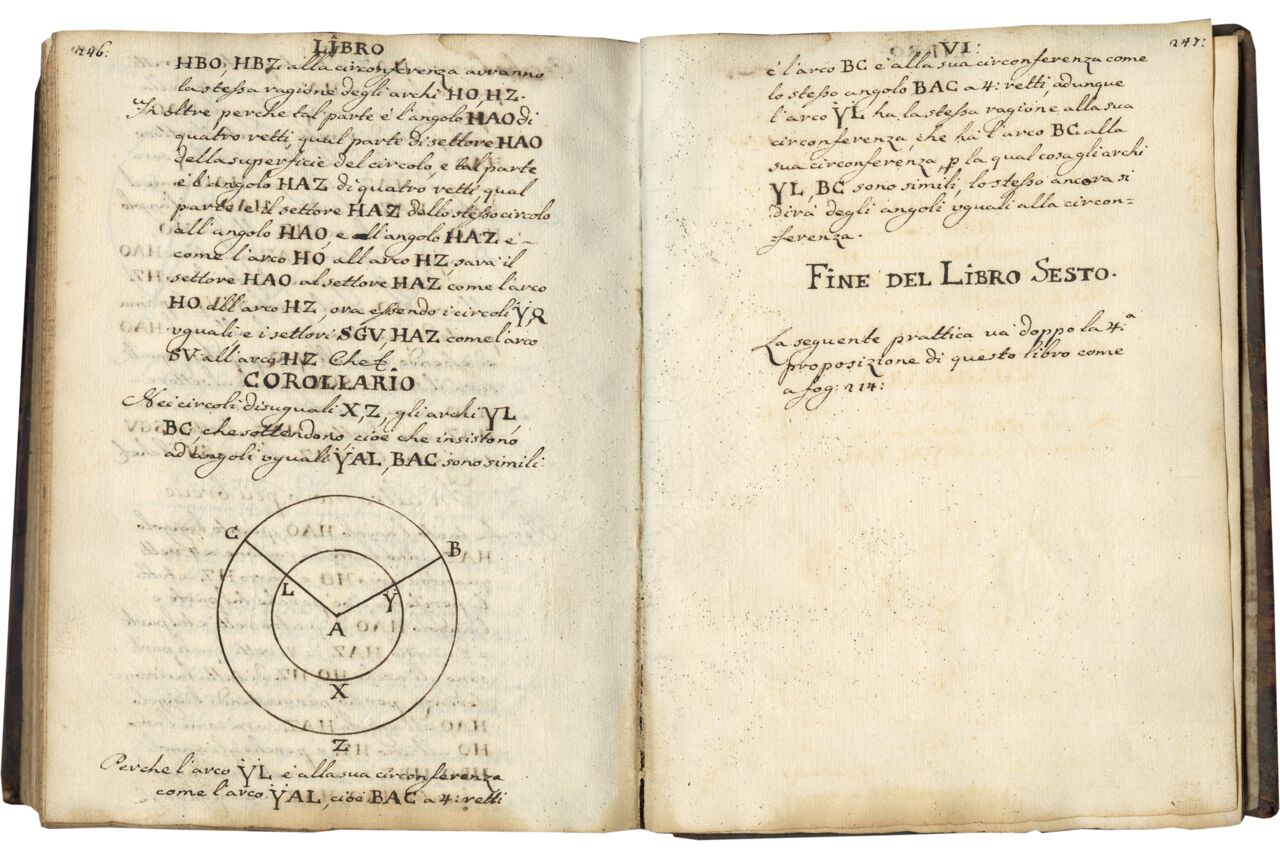 246:
LIBRO
HBO, HBZ alla circonferenza avranno
la stessa ragione degli archi HO, HZ.
In oltre perche tal parte è l'angolo HAO di
quatro retti, qual parte di settore HAO
della superficie del circolo, e tal parte
è l'angolo HAZ di quatro retti, qual
parte è il settore HAZ dello stesso circolo
all'angolo HAO, e all'angolo HAZ è -
come l'arco HO all'arco HZ, sarà il
settore HAO al settore HAZ come l'arco
HO all'arco HZ, ora essendo i circoli Y, R
uguali e i settori SGV, HAZ come l'arco
SV all'arco HZ Che &.
COROLLARIO
Nei circoli disuguali X, Z, gli archi YL,
BC, che sottendono, cioè che insistono
ad angoli uguali YAL, BAC sono simili:
C
B
L
Y
A
X
Z
Perche l'arco YL è alla sua circonferenza
come l'arco YAL, cioè BAC a 4: retti
VI:
247:
è l'arco BC è alla sua circonferenza come
lo stesso angolo BAC a 4: retti, adunque
l'arco YL ha la stessa ragione alla sua
circonferenza, che ha l'arco BC alla
sua circonferenza, p la qual cosa gli archi
YL, BC sono simili, lo stesso ancora si
dirà degli angoli vguali alla circon=
ferenza.
FINE DEL LIBRO SESTO.
La seguente prattica và doppo la 4.a
proposizione di questo libro come
a fog: 214: